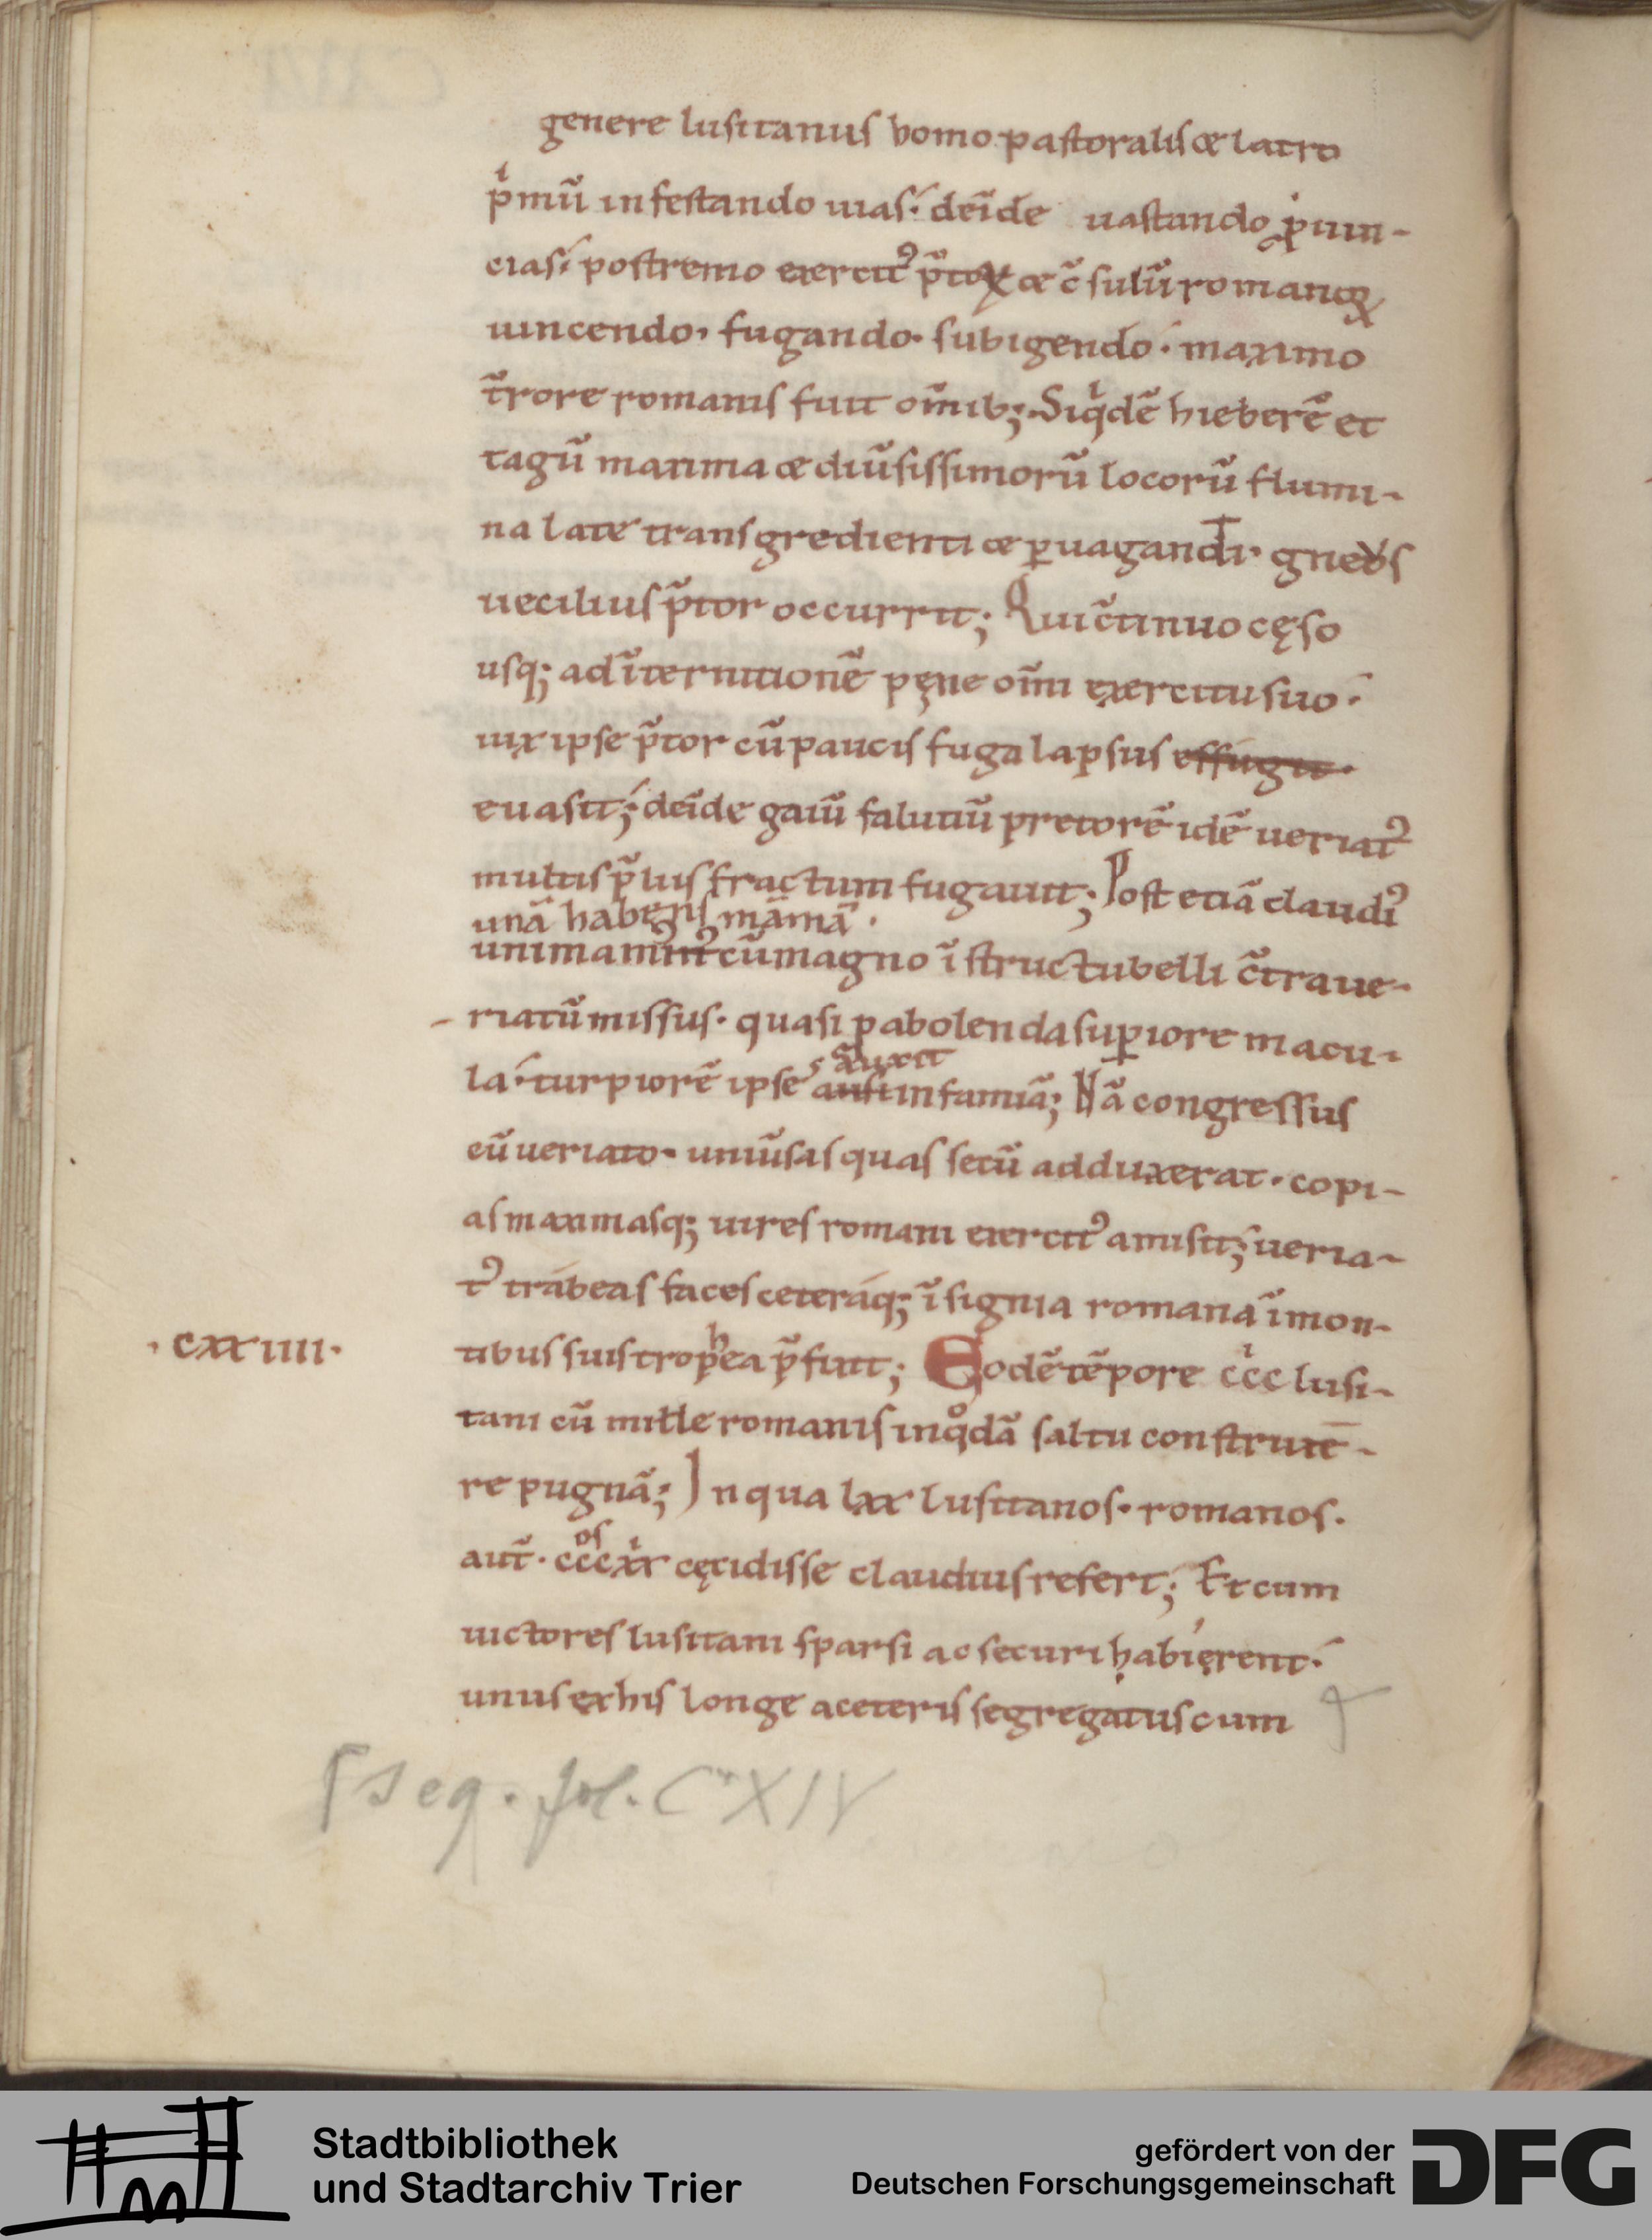 genere lusitanus homo pastoralis & latro
p'mũ infestando uias. deĩde uastando ꝓuin-
cias; postremo exercit᷒ p̃toꝝ & c̃sulũ romanoꝝ
uincendo, fugando. subigendo. maximo
t̃rore romanis fuit om̃ib; Siq'dẽ hieberẽ et
tagũ maxima & diũsissimorũ locorũ flumi-
na late transgredienti & ꝑuagandi. gneus
uecilius p̃tor occurrit; Qui c̃tinuo cęso
usq; ad ĩternitionẽ pęne om̃i exercitu suo.
uix ipse p̃tor cũ paucis fuga lapsus effugit.
euasit; deĩde gaiũ falutiũ pretorẽ idẽ ueriat᷒
multis p̃liis fractum fugauit; Post etiã claudi᷒
unã habens mãmã.
unimam᷒nt᷒ cũ magno ĩstructu belli c̃tra ue-
riatũ missus. quasi ꝑ abolenda suꝑiore macu-
la. turpiorẽ ipse auxit infamiã; Nã congressus
cũ ueriato. uniũsas quas secũ adduxerat. copi-
as maximasq; uires romani exercit᷒ amisit; ueria-
t᷒ trabeas faces ceteraq; ĩsignia romana ĩ mon-
.cxxiiii.
tibus suis trophea p̃fuit; Eodẽ tẽpore ccc lusi-
tani cũ mille romanis in q°dã saltu construxe-
re pugnã; In qua lxx lusitanos. romanos.
aut̃. cccos xx cęcidisse claudius refert; Et cum
uictores lusitani sparsi ac securi habierent.
unus ex his longe a ceteris segregatus cum
seq. fol. CXIV
Stadtbibliothek
und Stadtarchiv Trier
gefördert von der
Deutschen Forschungsgemeinschaft
DFG